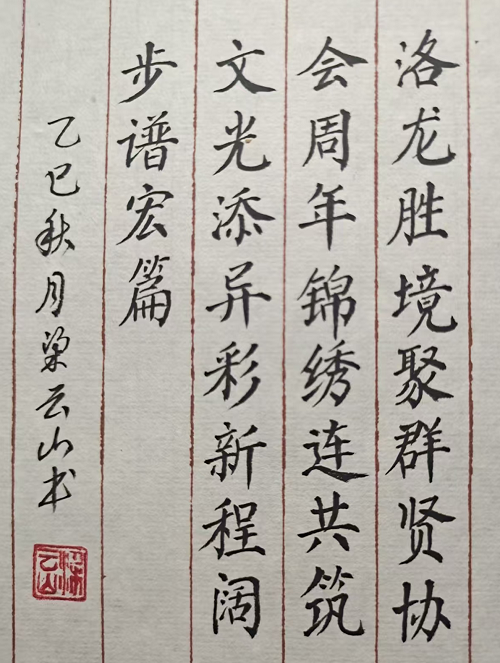 洛龙胜境聚群贤协
会周年锦绣连共筑
文光添异彩新程阔
步谱宏篇
乙巳秋月梁云山书
梁云山